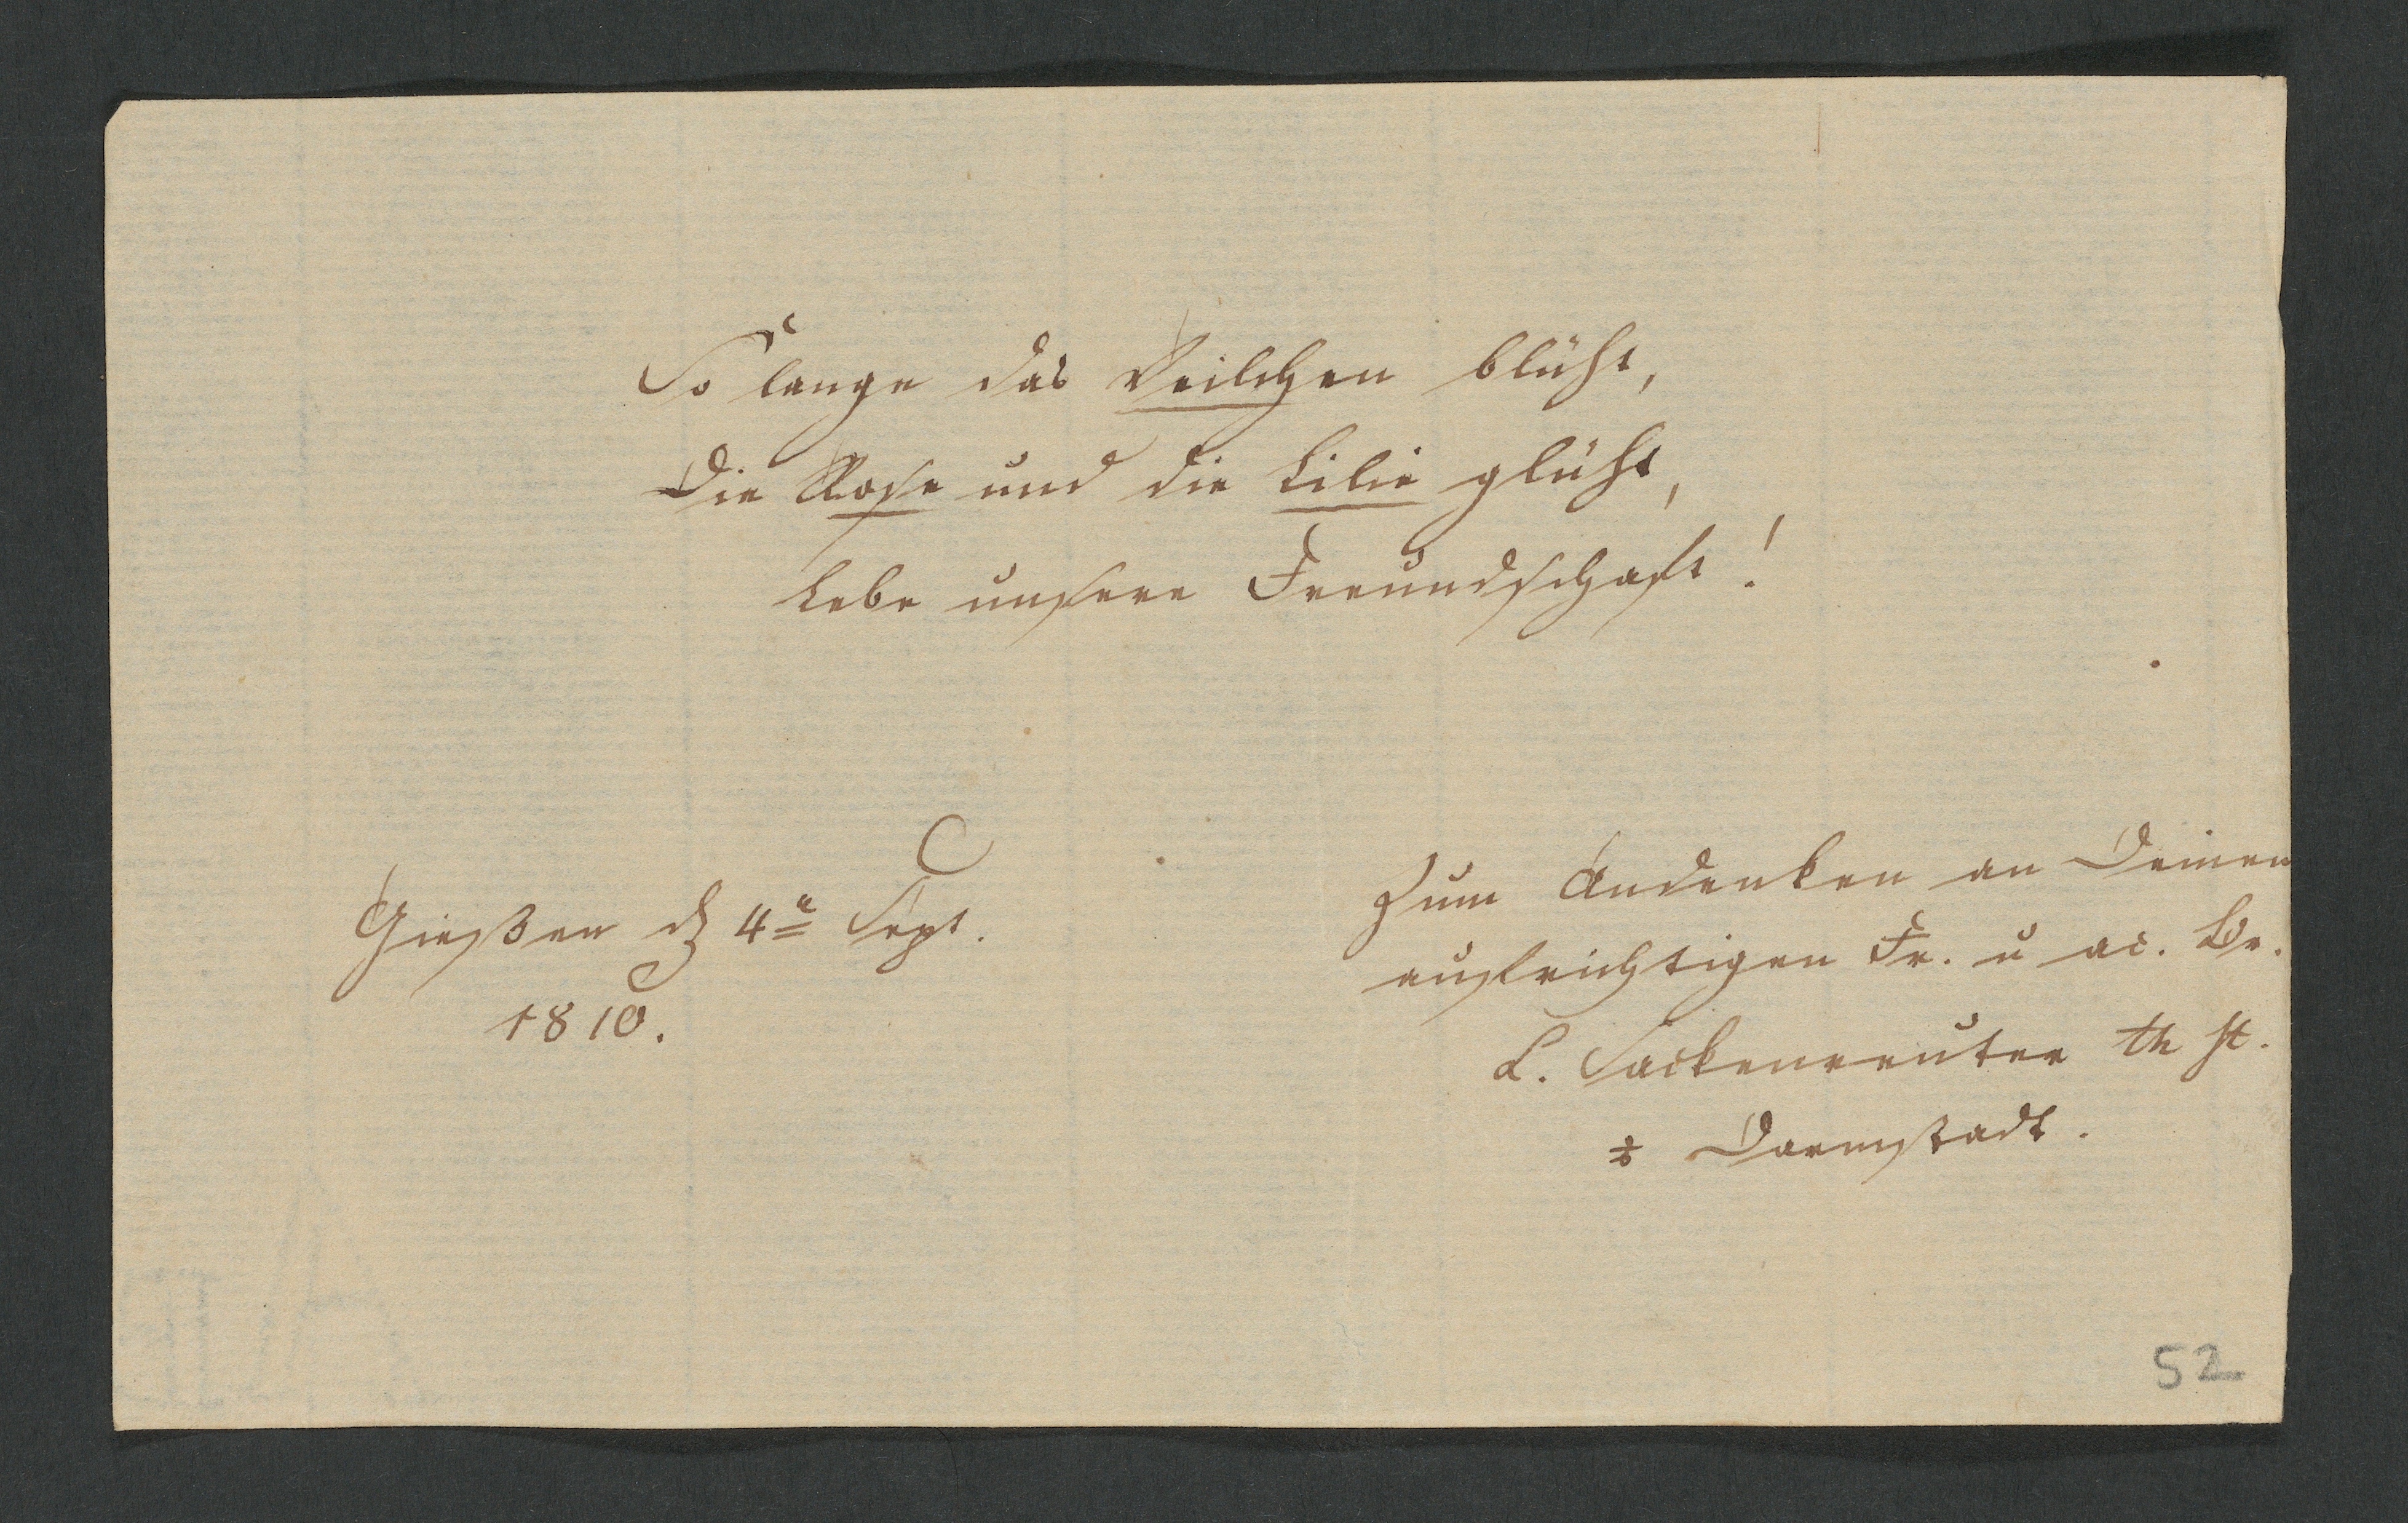 So lange das Veilchen blüht,
Die Rose und die Lilie glüht,
Lebe unsere Freundschaft!
Gießen d 4n Sept.
1810.
Zum Andenken an Deinen
aufrichtigen Fr. u ac. Br.
L. Sackenreuter th st.
Darmstadt.
52